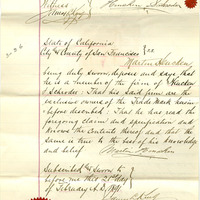 Witness
Hencken & Schroder
State of California
City & County of San Francisco } SS
Martin Hencken
being duly sworn, deposes and says, that
he is a member of the firm of Hencken
& Schroder. That his said firm are the
exclusive owners of the Trade Mark herein
before described. That he has read the
foregoing claim and specification and
knows the contents thereof and that the
same is true to the best of his knowledge
and belief
Martin Hencken
Subscribed & Sworn to
before me this 21st day
of February A.D. 1891